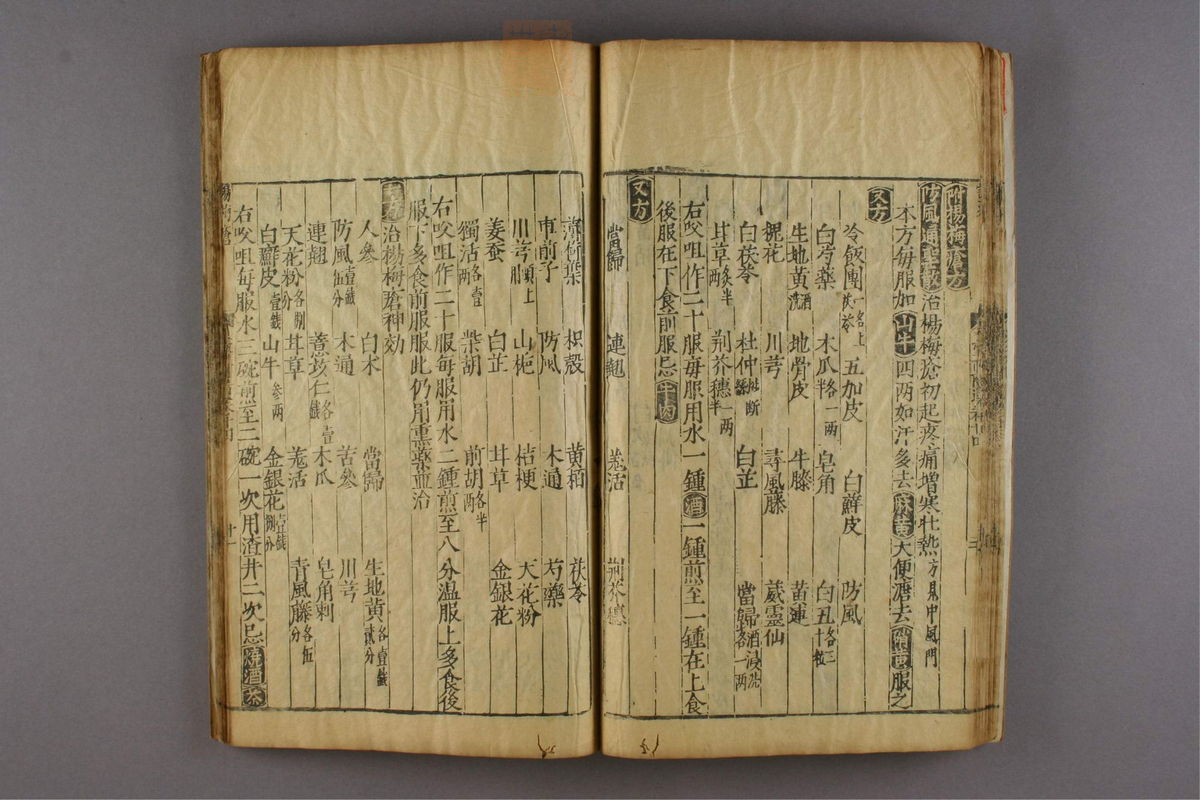 附楊梅瘡方
防風通聖散治楊梅瘡初起疼痛増寒壯熱方見中風門
本方每服加山牛四兩如汗多去麻黄大便溏去硝黄服之
又方
冷飯團 五加皮 白蘚皮 防風
白芍藥 木瓜 一兩 皂角 白丑各三十粒
生地黄酒洗 地骨皮 牛膝 黄連
槐花 川芎 尋風藤 葳靈仙
白茯苓 杜仲 白芷 當歸酒浸洗各一兩
甘草炙半 荆芥穗一兩半
右㕮咀作二十服每服用水一鍾酒一鍾煎至一鍾在上食
後服在下食前服忌牛肉
又方
當歸 連翹 羗活 荆芥穗
薄荷葉 枳殼 黄栢 茯苓
車前子 防風 木通 芍藥
川芎 山梔 桔梗 天花粉
姜蚕 白芷 甘草 金銀花
獨活各壹兩 柴胡 前胡各半兩
右㕮咀作二十服每服用水二鍾煎至八分温服上多食後
服下多食前服服此仍用熏藥並治
治楊梅瘡神効
人參 白木 當歸 生地黄各壹錢貳分
防風壹錢伍分 木通 苦參 川芎
連翹 薏苡仁各壹錢 木瓜 皂角刺
天花粉各捌分 甘草 羗活 青風藤各伍分
白蘚皮壹錢 山牛參兩 金銀花壹錢捌分
右㕮咀每服水三碗煎至二碗一次用渣并二次忌燒酒茶